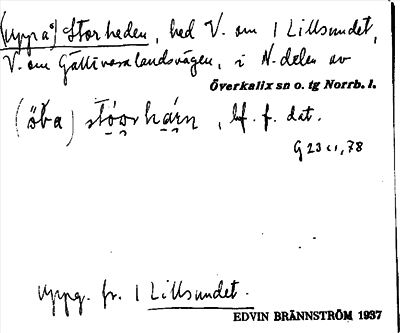 (uppå) Storheden, hed V. om 1 Lillsundet,
V. om Gällivaralandsvägen, i N. delen av
Överkalix sn o. tg Norrb. l.
(öƀa) stóorhárn, bf. f. dat.
G 23 c1, 78
Uppg. fr. 1 Lillsundet.
EDVIN BRÄNNSTRÖM 1937